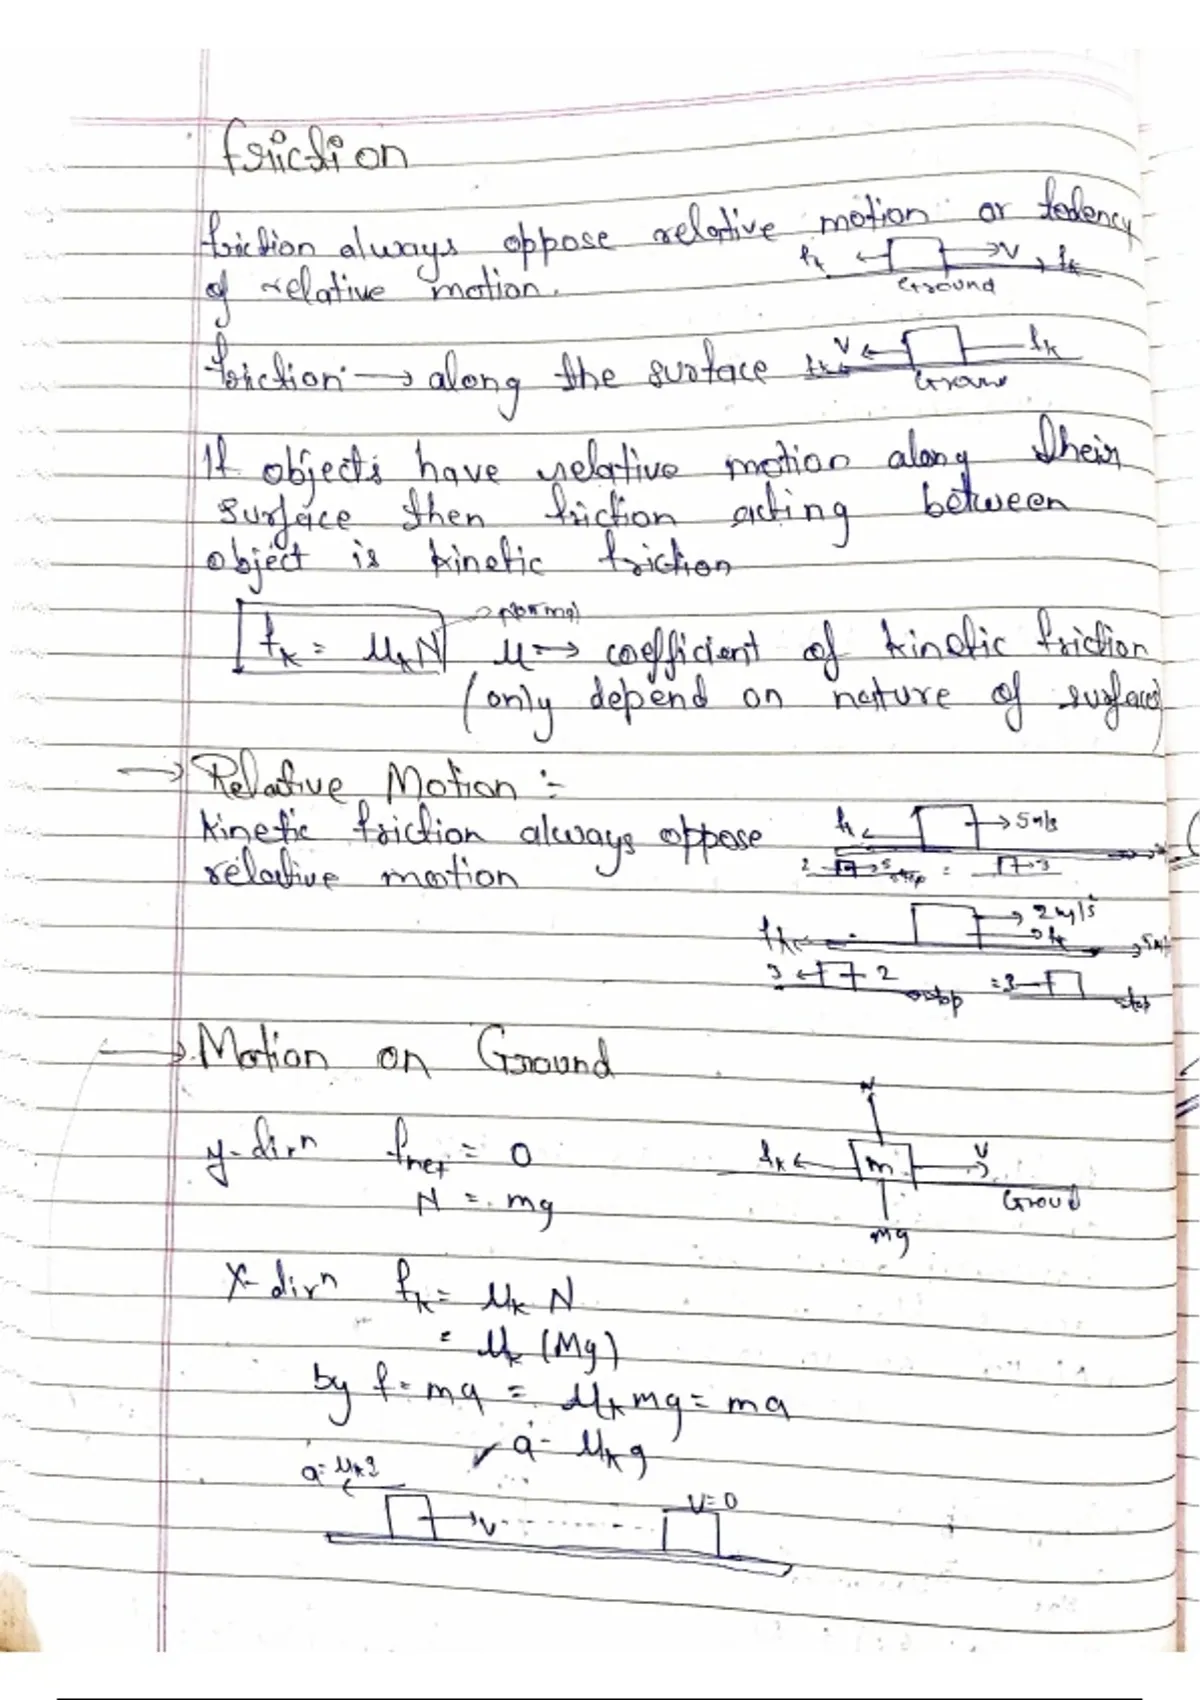 friction
friction always oppose relative motion or tedency
of relative motion.
fk V fk
Ground
friction → along the surface
V fk
fk
If objects have relative motion along their
surface then friction acting between
object is kinetic friction
Normal
fk = μkN μ → coefficient of kinetic friction
(only depend on nature of surfaces)
→ Relative Motion :-
kinetic friction always oppose
relative motion
fk 5m/s
2 5 stop = 3
2m/s
fk fk
3 2 stop = 3 stop
→ Motion on Ground
N
y-dirn fnet = 0
fk m V
N = mg
Groud
mg
x-dirn fk = μk N
= μk (Mg)
by f = ma = μk mg = ma
a = μk g
a = μkg
V V=0